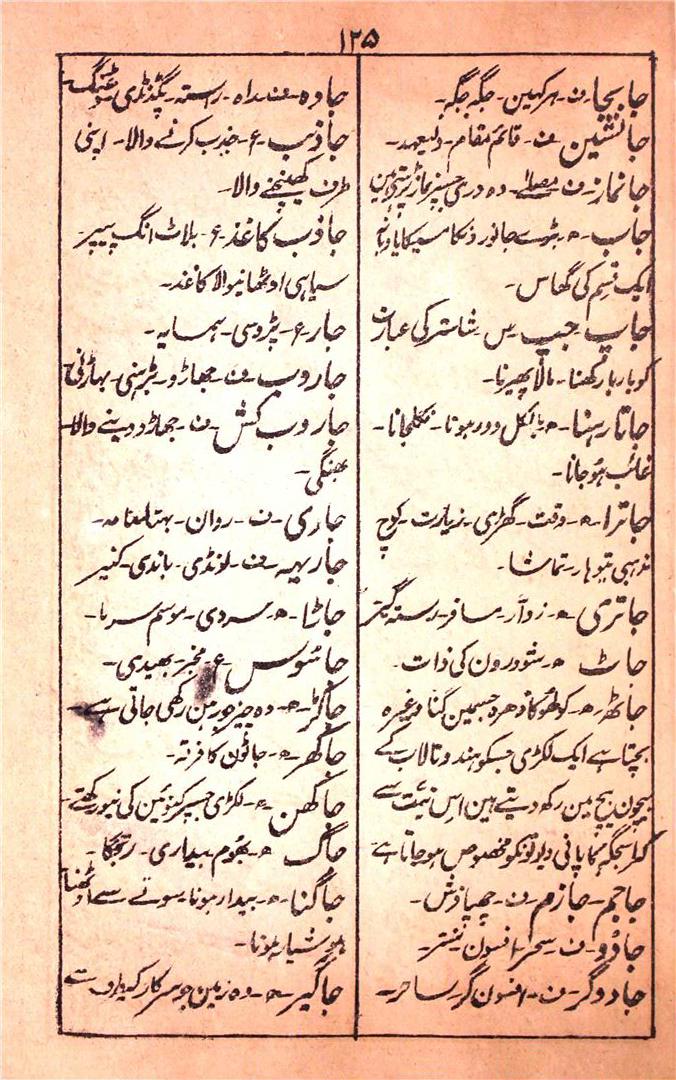 ۱۲۵
جا بجا۔ ف۔ ہر کہین۔ جگہ جگہ۔
جانشین ف۔ قائم مقام۔ ولیعہد۔
جانماز۔ ف مصلے۔ وہ دری جسپر نماز پڑہتی ہین
جاب۔ ھ۔ جانور
ایک قسم کی گھاس۔
جاپ۔ جپ س شاستر کی عبارت
کو بار بار کھنا۔ مالا پھیرنا۔
جاتا رہنا۔ ھ۔ بالکل دور ہونا۔ نکلجانا۔
غائب ہوجانا۔
جاترا۔ ھ۔ وقت۔ گھڑی۔ زیارت۔ کوچ
مذہبی تیوہار۔ تماشا۔
جاتری۔ ھ۔ زوآر۔ مسافر۔ رستہ گیر
جاٹ ھ۔ کی ذات۔
جاٹھر۔ ھ۔ کولھو کا دھرہ جسمین گنا وغیرہ
ہے ایک لکڑی جسکو ہندو تالاب کے
بیچون بیچ مین رکھ دیتے ہین اس نیت سے
کہ اسجگہہ کا پانی دیوتونکو مخصوص ہوجاتا ہے
جاجم۔ جازم۔ ف۔
جادو۔ ف۔ سحر۔ افسون
جادوگر۔ ف۔ افسون گر۔ ساحر۔
جادہ۔ ف۔ راہ۔ راستہ۔ پگڈنڈی
جاذب۔ ع۔ جذب کرنے والا۔ اپنی
طرف کھینچنے والا۔
جاذب کاغذ۔ ع۔ بلاٹ انگ پیپر۔
سیاہی اوٹھانیوالا کاغذ۔
جار۔ ع۔ پڑوسی۔ ہمسایہ۔
جاروب۔ ف۔ جھاڑو۔ بڑہنی۔ بہاڑنی
جاروب کش۔ ف۔ جھاڑو دینے والا۔
بھنگی۔
جاری۔ ف۔ روان۔ بہتا ہوا۔
جاریہ۔ ف۔ لونڈی۔ باندی۔ کنیز
جاڑا۔ ھ۔ سردی۔ موسم سرما۔
جاسوس۔ ع۔ مخبر۔ بھیدی۔
جاکڑ۔ ھ۔ وہ چیز جو رہن رکھی جاتی ہے۔
جاکھر۔ ھ۔ جاٹون کا فرقہ۔
جاکھن۔ ھ۔ لکڑی جسپر کنوئین کی نیو رکھتے۔
جاگ ھ۔ ہوم۔ بیداری۔ رتجگا۔
جاگنا۔ ھ۔ بیدار ہونا۔ سوتے سے اوٹھنا
ہوشیار ہونا۔
جاگیر۔ ھ۔ وہ زمین جو سرکار کیطرف سے